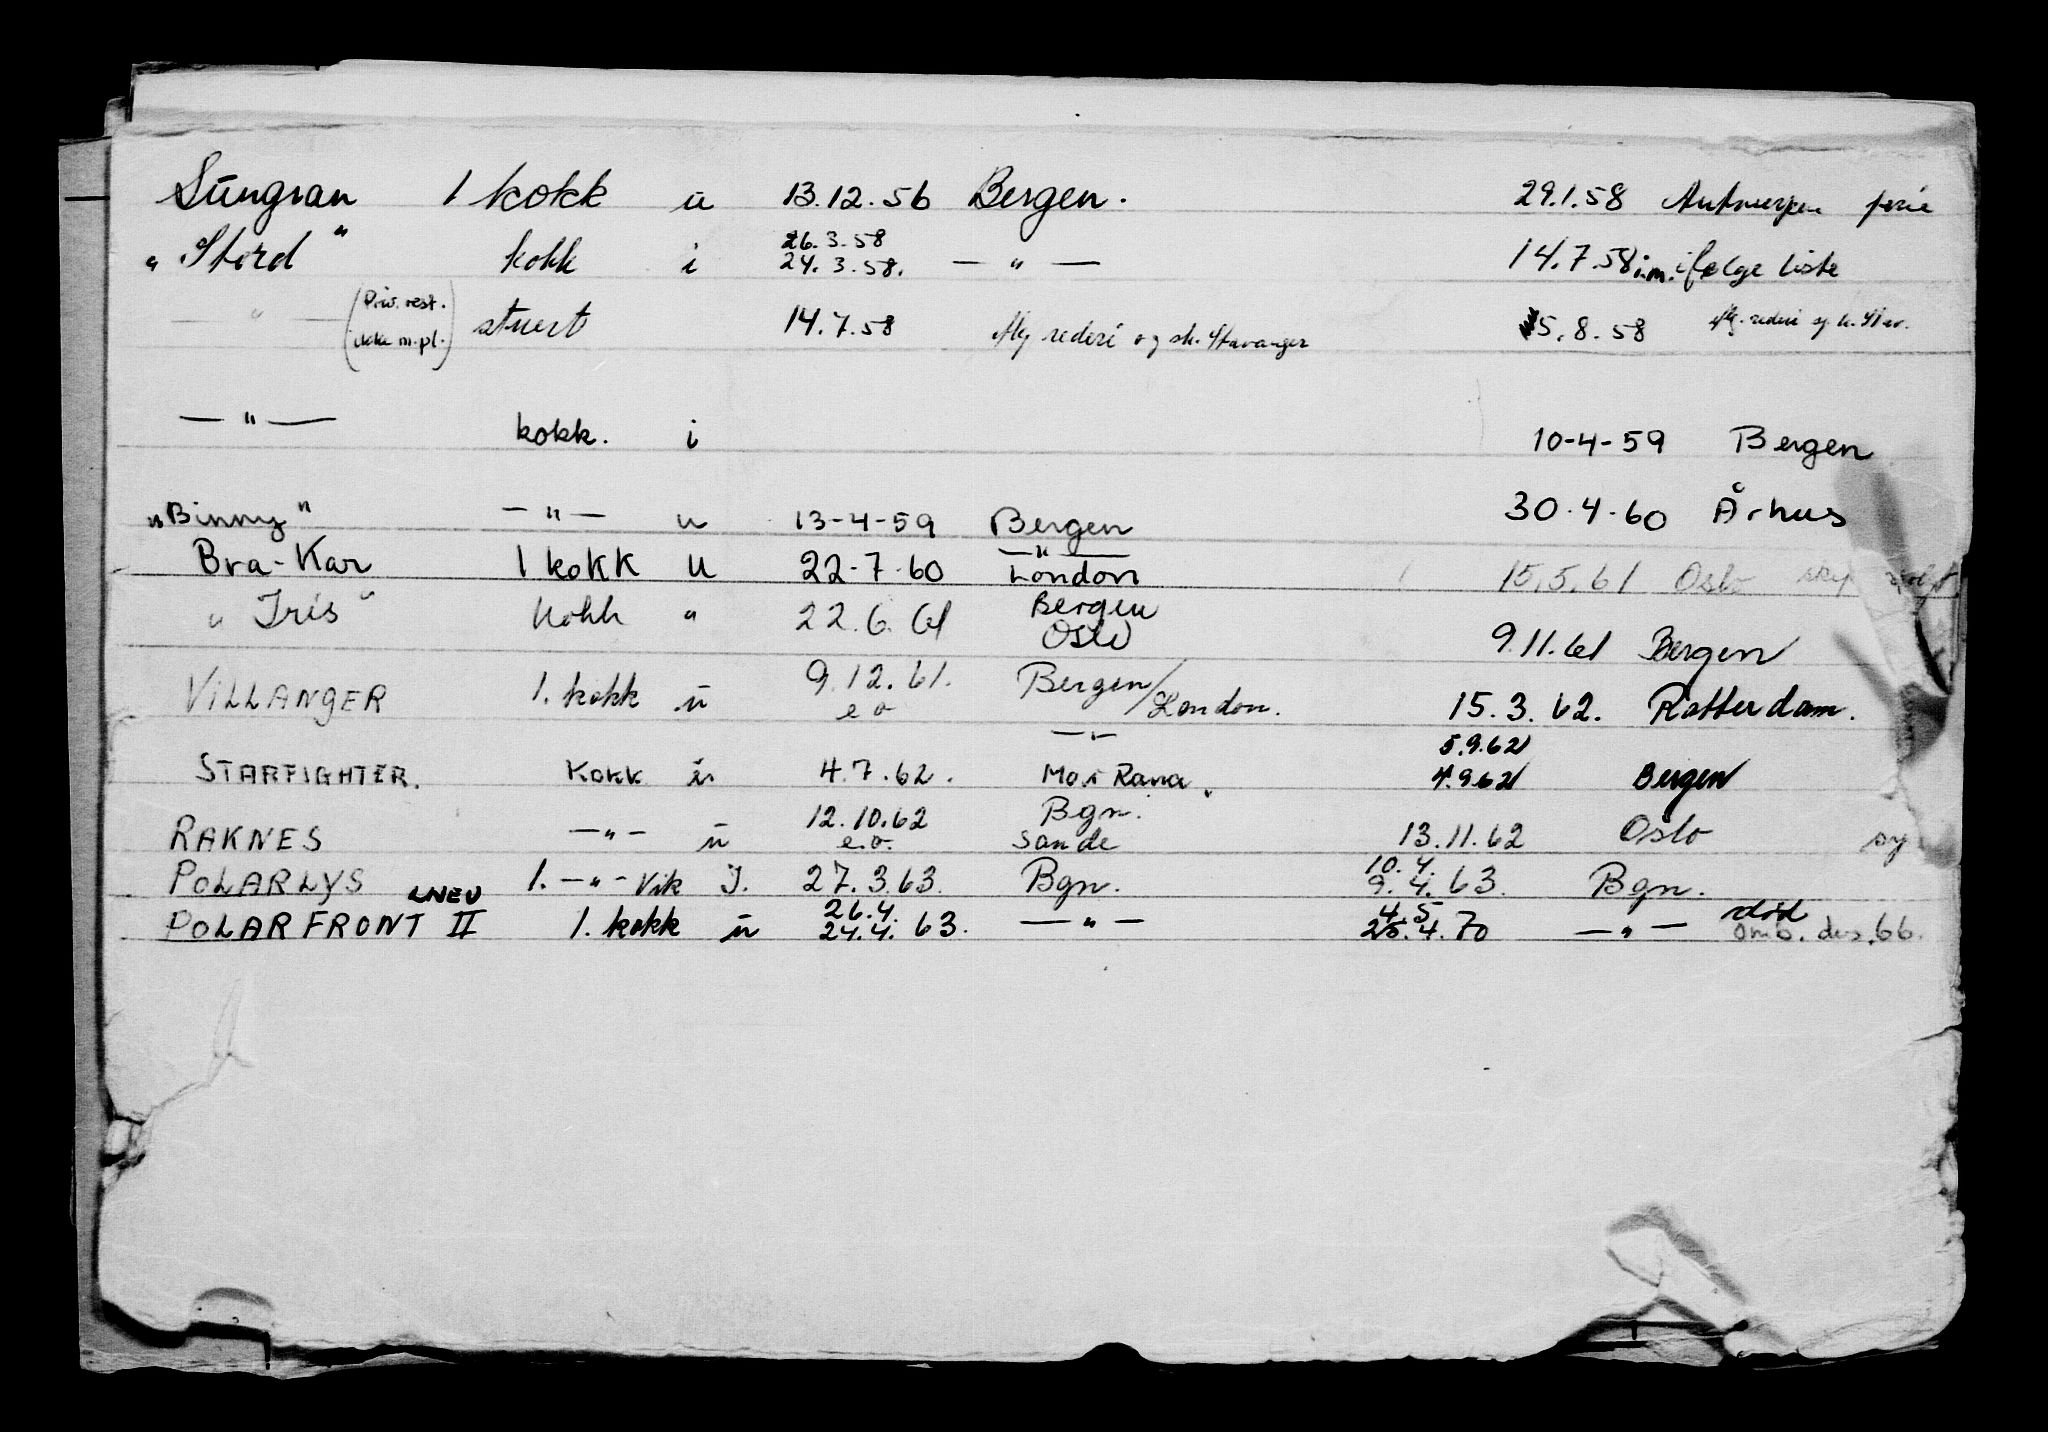 Sungran 1 kokk u 13.12.56 Bergen. 29.1.58 Antwerpen ferie
"Stord" kokk i 26.3.58 24.3.58. — " — 14.7.58 i.m. ifølge liste
— " — (Priv. rest. ikke m.pl.) stuert 14.7.58 Alg rederi og sk. Stavanger 5.8.58 Alg. rederi og k. Stav.
— " — kokk. i 10-4-59 Bergen
"Binny" — " — u 13-4-59 Bergen 30.4.60 Århus
Bra-Kar 1 kokk u 22-7-60 — " — London 15.5.61 Oslo
"Iris" kokk " 22.6.61 Bergen Oslo 9.11.61 Bergen
VILLANGER 1. kokk u 9.12.61. e o Bergen/London. 15.3.62. Rotterdam.
STARFIGHTER. Kokk u 4.7.62. — " — Mo i Rana. 5.9.62 4.9.62 Bergen
RAKNES — " — u 12.10.62 e.o. Bgn. Sande 13.11.62 Oslo sy
POLARLYS 1. — " — Vik I. 27.3.63. Bgn. 10.4. 9.4.63. Bgn.
POLARFRONT II LNEU 1. kokk u 26.4. 24.4.63. — " — 4.5 25.4.70 — " — død omb. des. 66.